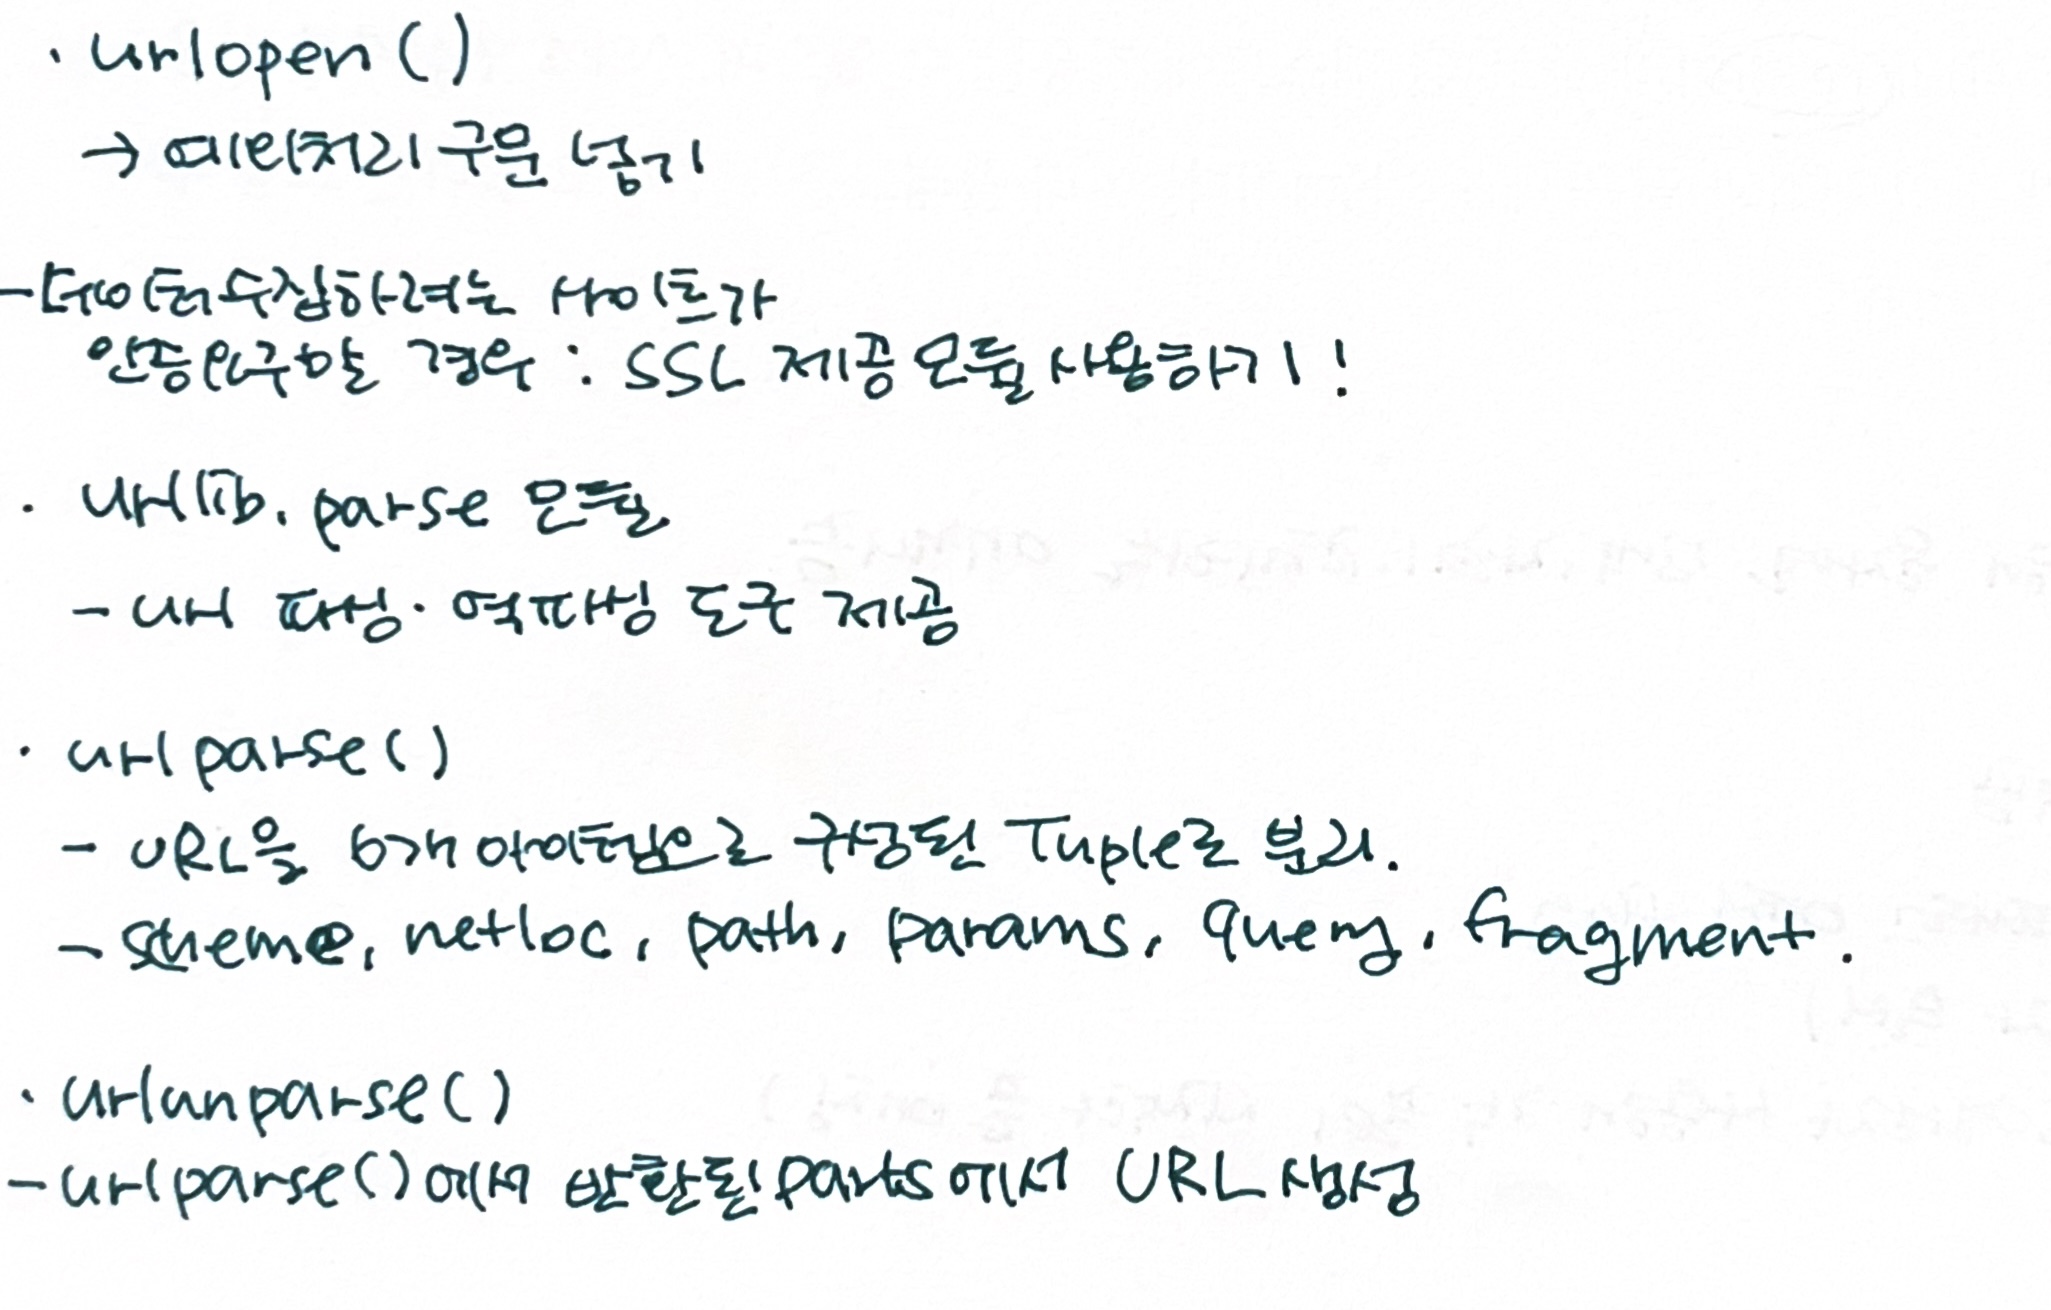 · urlopen()
→ 예외처리 구문 넣기
- 데이터수집하려는 사이트가
인증요구할 경우 : SSL 제공 모듈 사용하기!
· urllib.parse 모듈
- url 파싱·역파싱 도구 제공
· urlparse()
- URL을 6개 아이템으로 구성된 Tuple로 분리.
- scheme, netloc, path, params, query, fragment.
· urlunparse()
- urlparse()에서 반환된 parts에서 URL 생성